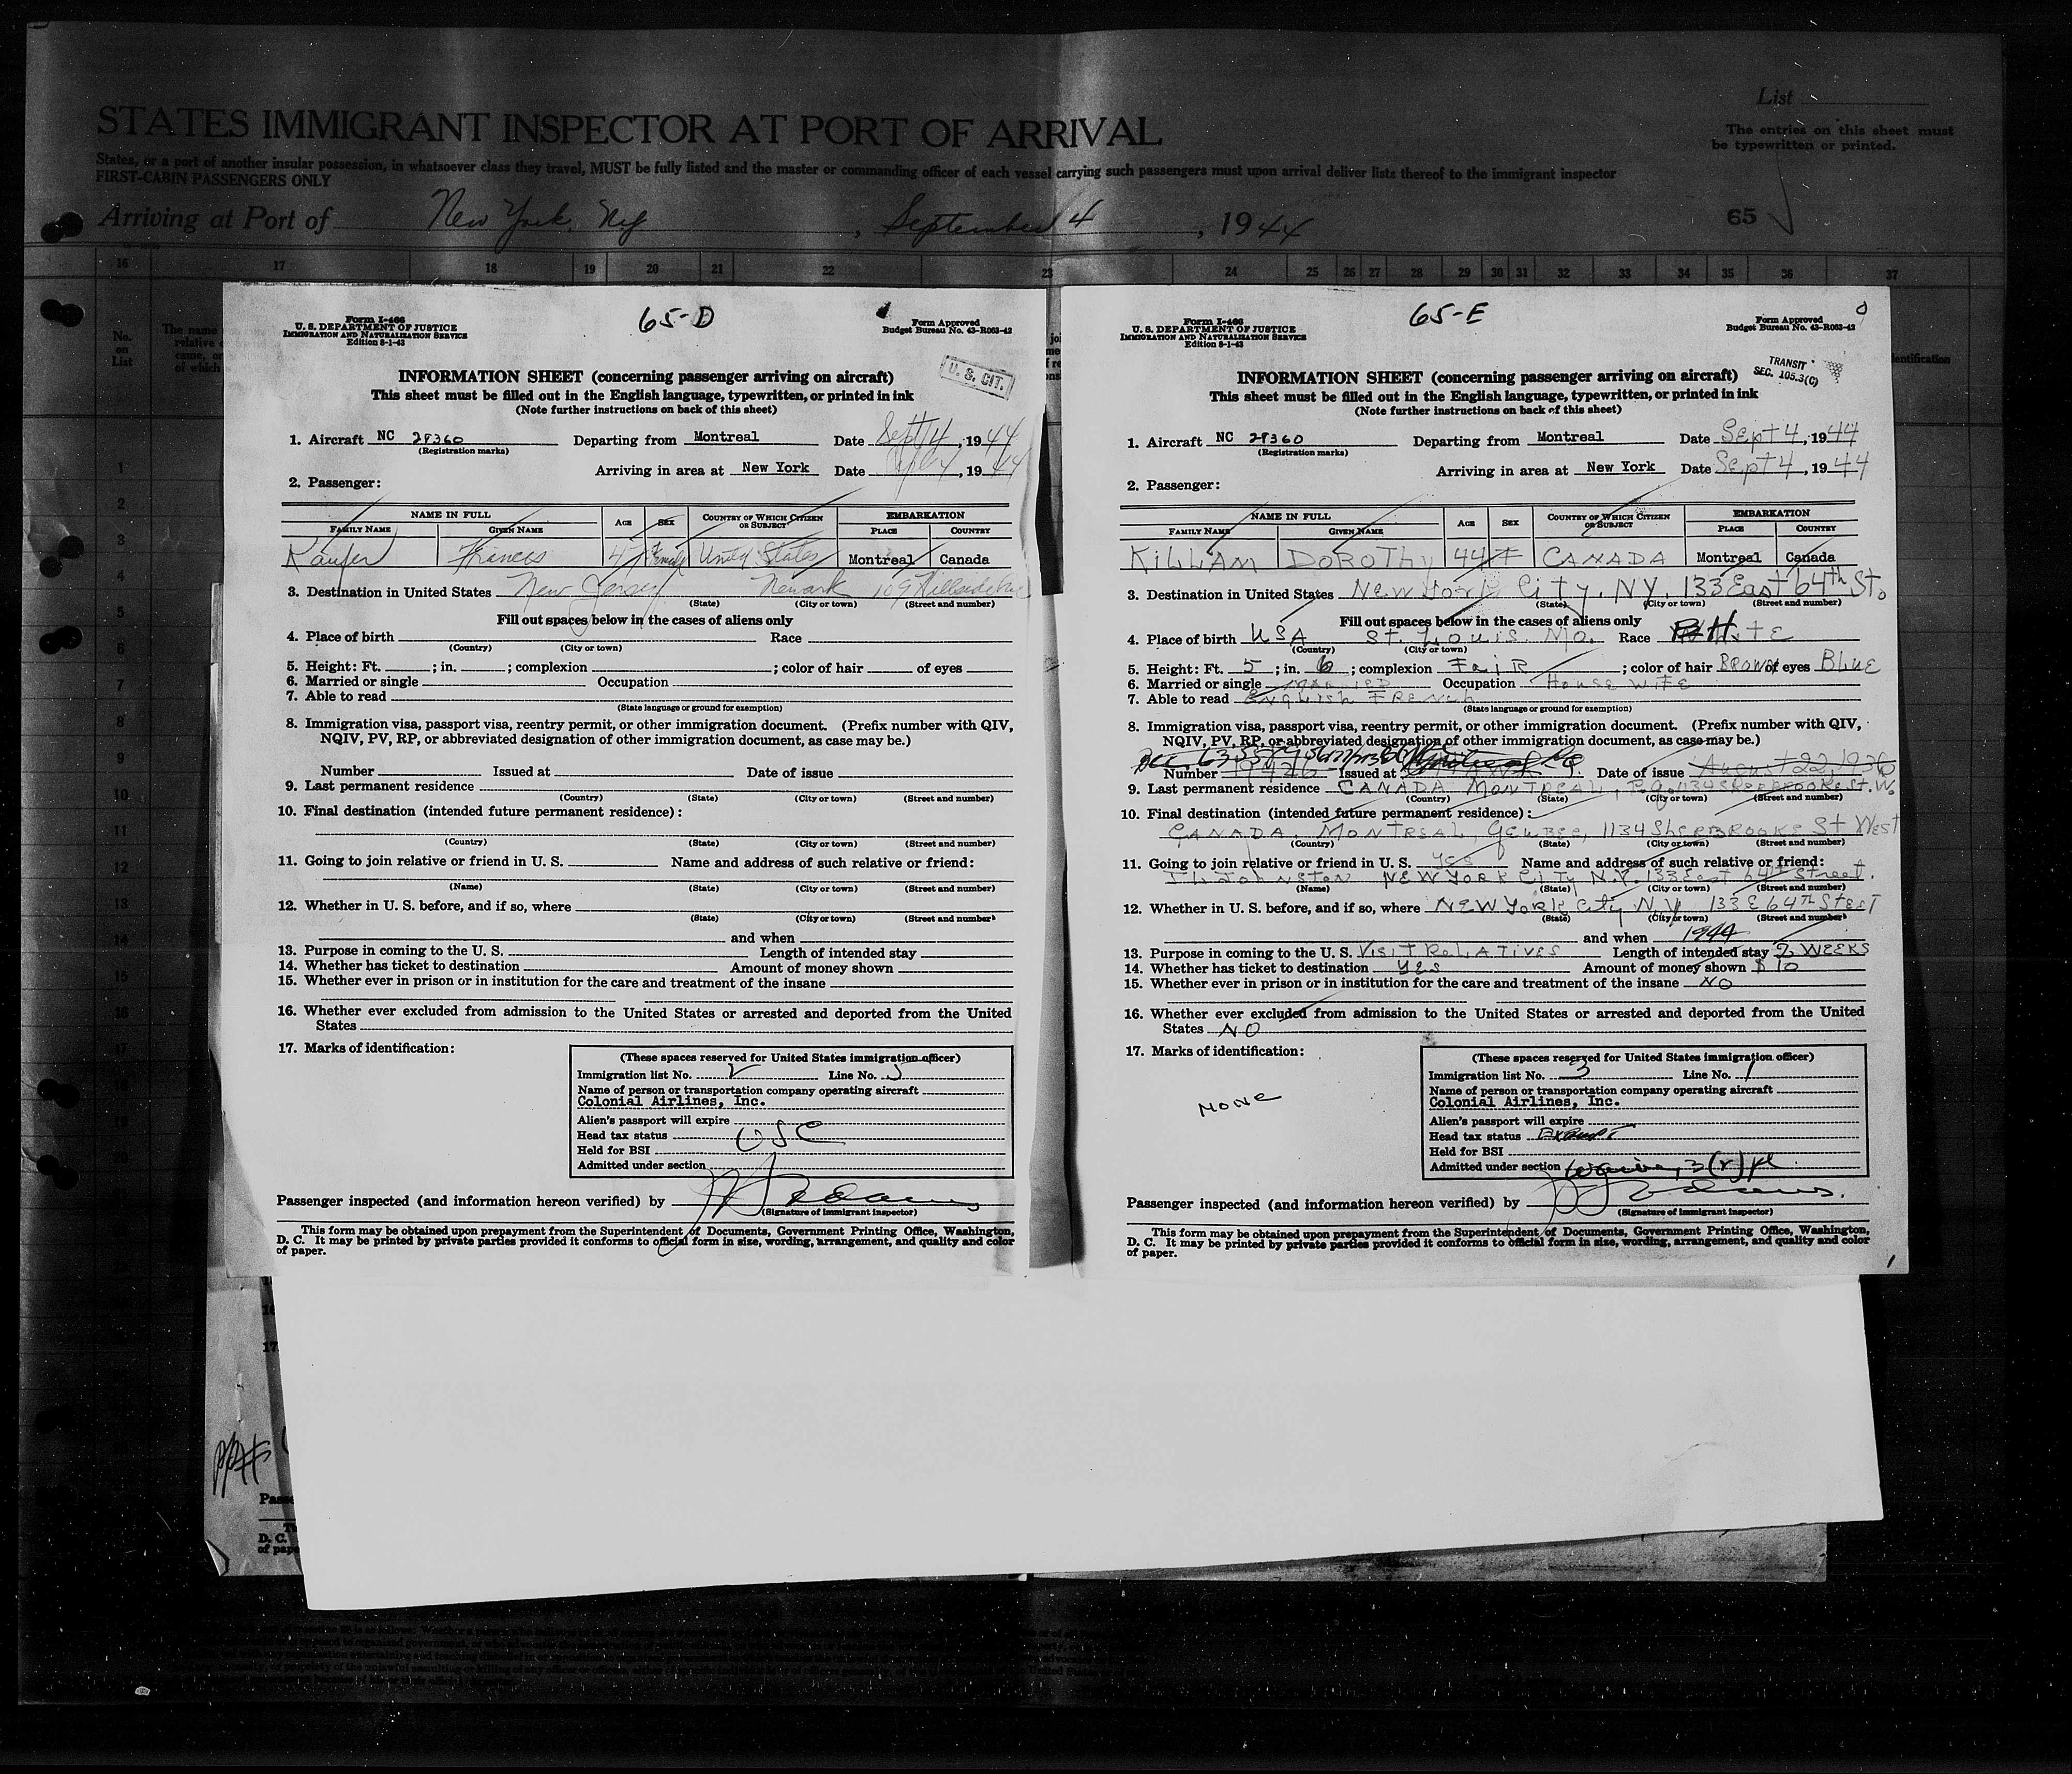 List
STATES IMMIGRANT INSPECTOR AT PORT OF ARRIVAL
The entries on this sheet must
be typewritten or printed.
States, or a port of another insular possession, in whatsoever class they travel, MUST be fully listed and the master or commanding officer of each vessel carrying such passengers must upon arrival deliver lists thereof to the immigrant inspector
FIRST-CABIN PASSENGERS ONLY
Arriving at Port of New York, NY, September 4, 1944
65
16 17 18 19 20 21 22 23 24 25 26 27 28 29 30 31 32 33 34 35 36 37
No.
on
List
65-D
Form I-466
U. S. DEPARTMENT OF JUSTICE
IMMIGRATION AND NATURALIZATION SERVICE
Edition 8-1-43
Form Approved
Budget Bureau No. 43-R063-42
U. S. CIT.
INFORMATION SHEET (concerning passenger arriving on aircraft)
This sheet must be filled out in the English language, typewritten, or printed in ink
(Note further instructions on back of this sheet)
1. Aircraft NC 28360 Departing from Montreal Date Sept 4, 1944
(Registration marks)
Arriving in area at New York Date Sept 4, 1944
2. Passenger:
NAME IN FULL AGE SEX COUNTRY OF WHICH CITIZEN OR SUBJECT EMBARKATION
FAMILY NAME GIVEN NAME PLACE COUNTRY
Frances 47 Female United States Montreal Canada
3. Destination in United States New Jersey Newark 109 Hillside Ave
(State) (City or town) (Street and number)
Fill out spaces below in the cases of aliens only
4. Place of birth Race
(Country) (City or town)
5. Height: Ft. ; in. ; complexion ; color of hair of eyes
6. Married or single Occupation
7. Able to read
(State language or ground for exemption)
8. Immigration visa, passport visa, reentry permit, or other immigration document. (Prefix number with QIV,
NQIV, PV, RP, or abbreviated designation of other immigration document, as case may be.)
Number Issued at Date of issue
9. Last permanent residence
(Country) (State) (City or town) (Street and number)
10. Final destination (intended future permanent residence):
(Country) (State) (City or town) (Street and number)
11. Going to join relative or friend in U. S. Name and address of such relative or friend:
(Name) (State) (City or town) (Street and number)
12. Whether in U. S. before, and if so, where
(State) (City or town) (Street and number)
and when
13. Purpose in coming to the U. S. Length of intended stay
14. Whether has ticket to destination Amount of money shown
15. Whether ever in prison or in institution for the care and treatment of the insane
16. Whether ever excluded from admission to the United States or arrested and deported from the United
States
17. Marks of identification:
(These spaces reserved for United States immigration officer)
Immigration list No. 2 Line No. 5
Name of person or transportation company operating aircraft
Colonial Airlines, Inc.
Alien's passport will expire
Head tax status USC
Held for BSI
Admitted under section
Passenger inspected (and information hereon verified) by
(Signature of immigrant inspector)
This form may be obtained upon prepayment from the Superintendent of Documents, Government Printing Office, Washington,
D. C. It may be printed by private parties provided it conforms to official form in size, wording, arrangement, and quality and color
of paper.
65-E
Form I-466
U. S. DEPARTMENT OF JUSTICE
IMMIGRATION AND NATURALIZATION SERVICE
Edition 8-1-43
Form Approved
Budget Bureau No. 43-R063-42
TRANSIT
SEC. 105.3(C)
INFORMATION SHEET (concerning passenger arriving on aircraft)
This sheet must be filled out in the English language, typewritten, or printed in ink
(Note further instructions on back of this sheet)
1. Aircraft NC 28360 Departing from Montreal Date Sept 4, 1944
(Registration marks)
Arriving in area at New York Date Sept 4, 1944
2. Passenger:
NAME IN FULL AGE SEX COUNTRY OF WHICH CITIZEN OR SUBJECT EMBARKATION
FAMILY NAME GIVEN NAME PLACE COUNTRY
KILLAM DOROTHY 44 F CANADA Montreal Canada
3. Destination in United States NEW YORK CITY. NY. 133 East 64th St.
(State) (City or town) (Street and number)
Fill out spaces below in the cases of aliens only
4. Place of birth USA St. Louis. Mo. Race WHITE
(Country) (City or town)
5. Height: Ft. 5; in. 6; complexion FAIR; color of hair BROWN of eyes BLUE
6. Married or single MARRIED Occupation HOUSE WIFE
7. Able to read English FRENCH
(State language or ground for exemption)
8. Immigration visa, passport visa, reentry permit, or other immigration document. (Prefix number with QIV,
NQIV, PV, RP, or abbreviated designation of other immigration document, as case may be.)
Number Issued at Date of issue August 22, 1936
9. Last permanent residence CANADA MONTREAL, P.Q. 1134 SHERBROOKE St. W.
(Country) (State) (City or town) (Street and number)
10. Final destination (intended future permanent residence):
CANADA, MONTREAL, QEUBEC, 1134 SHERBROOKE St WEST
(Country) (State) (City or town) (Street and number)
11. Going to join relative or friend in U. S. YES Name and address of such relative or friend:
JOHNSTON NEW YORK CITY N.Y. 133 East 64th Street.
(Name) (State) (City or town) (Street and number)
12. Whether in U. S. before, and if so, where NEW YORK City N.Y. 133 E 64TH STEET
(State) (City or town) (Street and number)
and when 1944
13. Purpose in coming to the U. S. VISIT RELATIVES Length of intended stay 2 WEEKS
14. Whether has ticket to destination YES Amount of money shown $10
15. Whether ever in prison or in institution for the care and treatment of the insane NO
16. Whether ever excluded from admission to the United States or arrested and deported from the United
States NO
17. Marks of identification:
NONE
(These spaces reserved for United States immigration officer)
Immigration list No. 3 Line No. 1
Name of person or transportation company operating aircraft
Colonial Airlines, Inc.
Alien's passport will expire
Head tax status Exempt
Held for BSI
Admitted under section
Passenger inspected (and information hereon verified) by
(Signature of immigrant inspector)
This form may be obtained upon prepayment from the Superintendent of Documents, Government Printing Office, Washington,
D. C. It may be printed by private parties provided it conforms to official form in size, wording, arrangement, and quality and color
of paper.